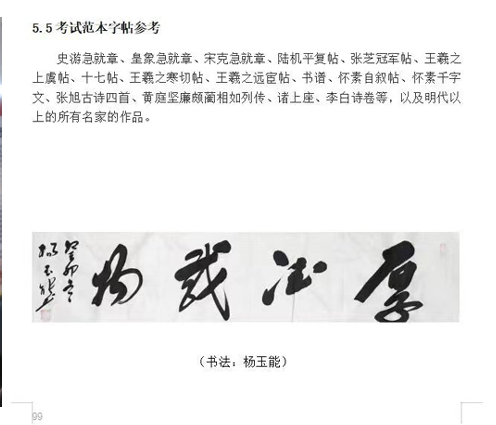 5.5 考试范本字帖参考
史游急就章、皇象急就章、宋克急就章、陆机平复帖、张芝冠军帖、王羲之
上虞帖、十七帖、王羲之寒切帖、王羲之远宦帖、书谱、怀素自叙帖、怀素千字
文、张旭古诗四首、黄庭坚廉颇蔺相如列传、诸上座、李白诗卷等，以及明代以
上的所有名家的作品。
厚德载物
癸卯冬
杨玉能
（书法：杨玉能）
99